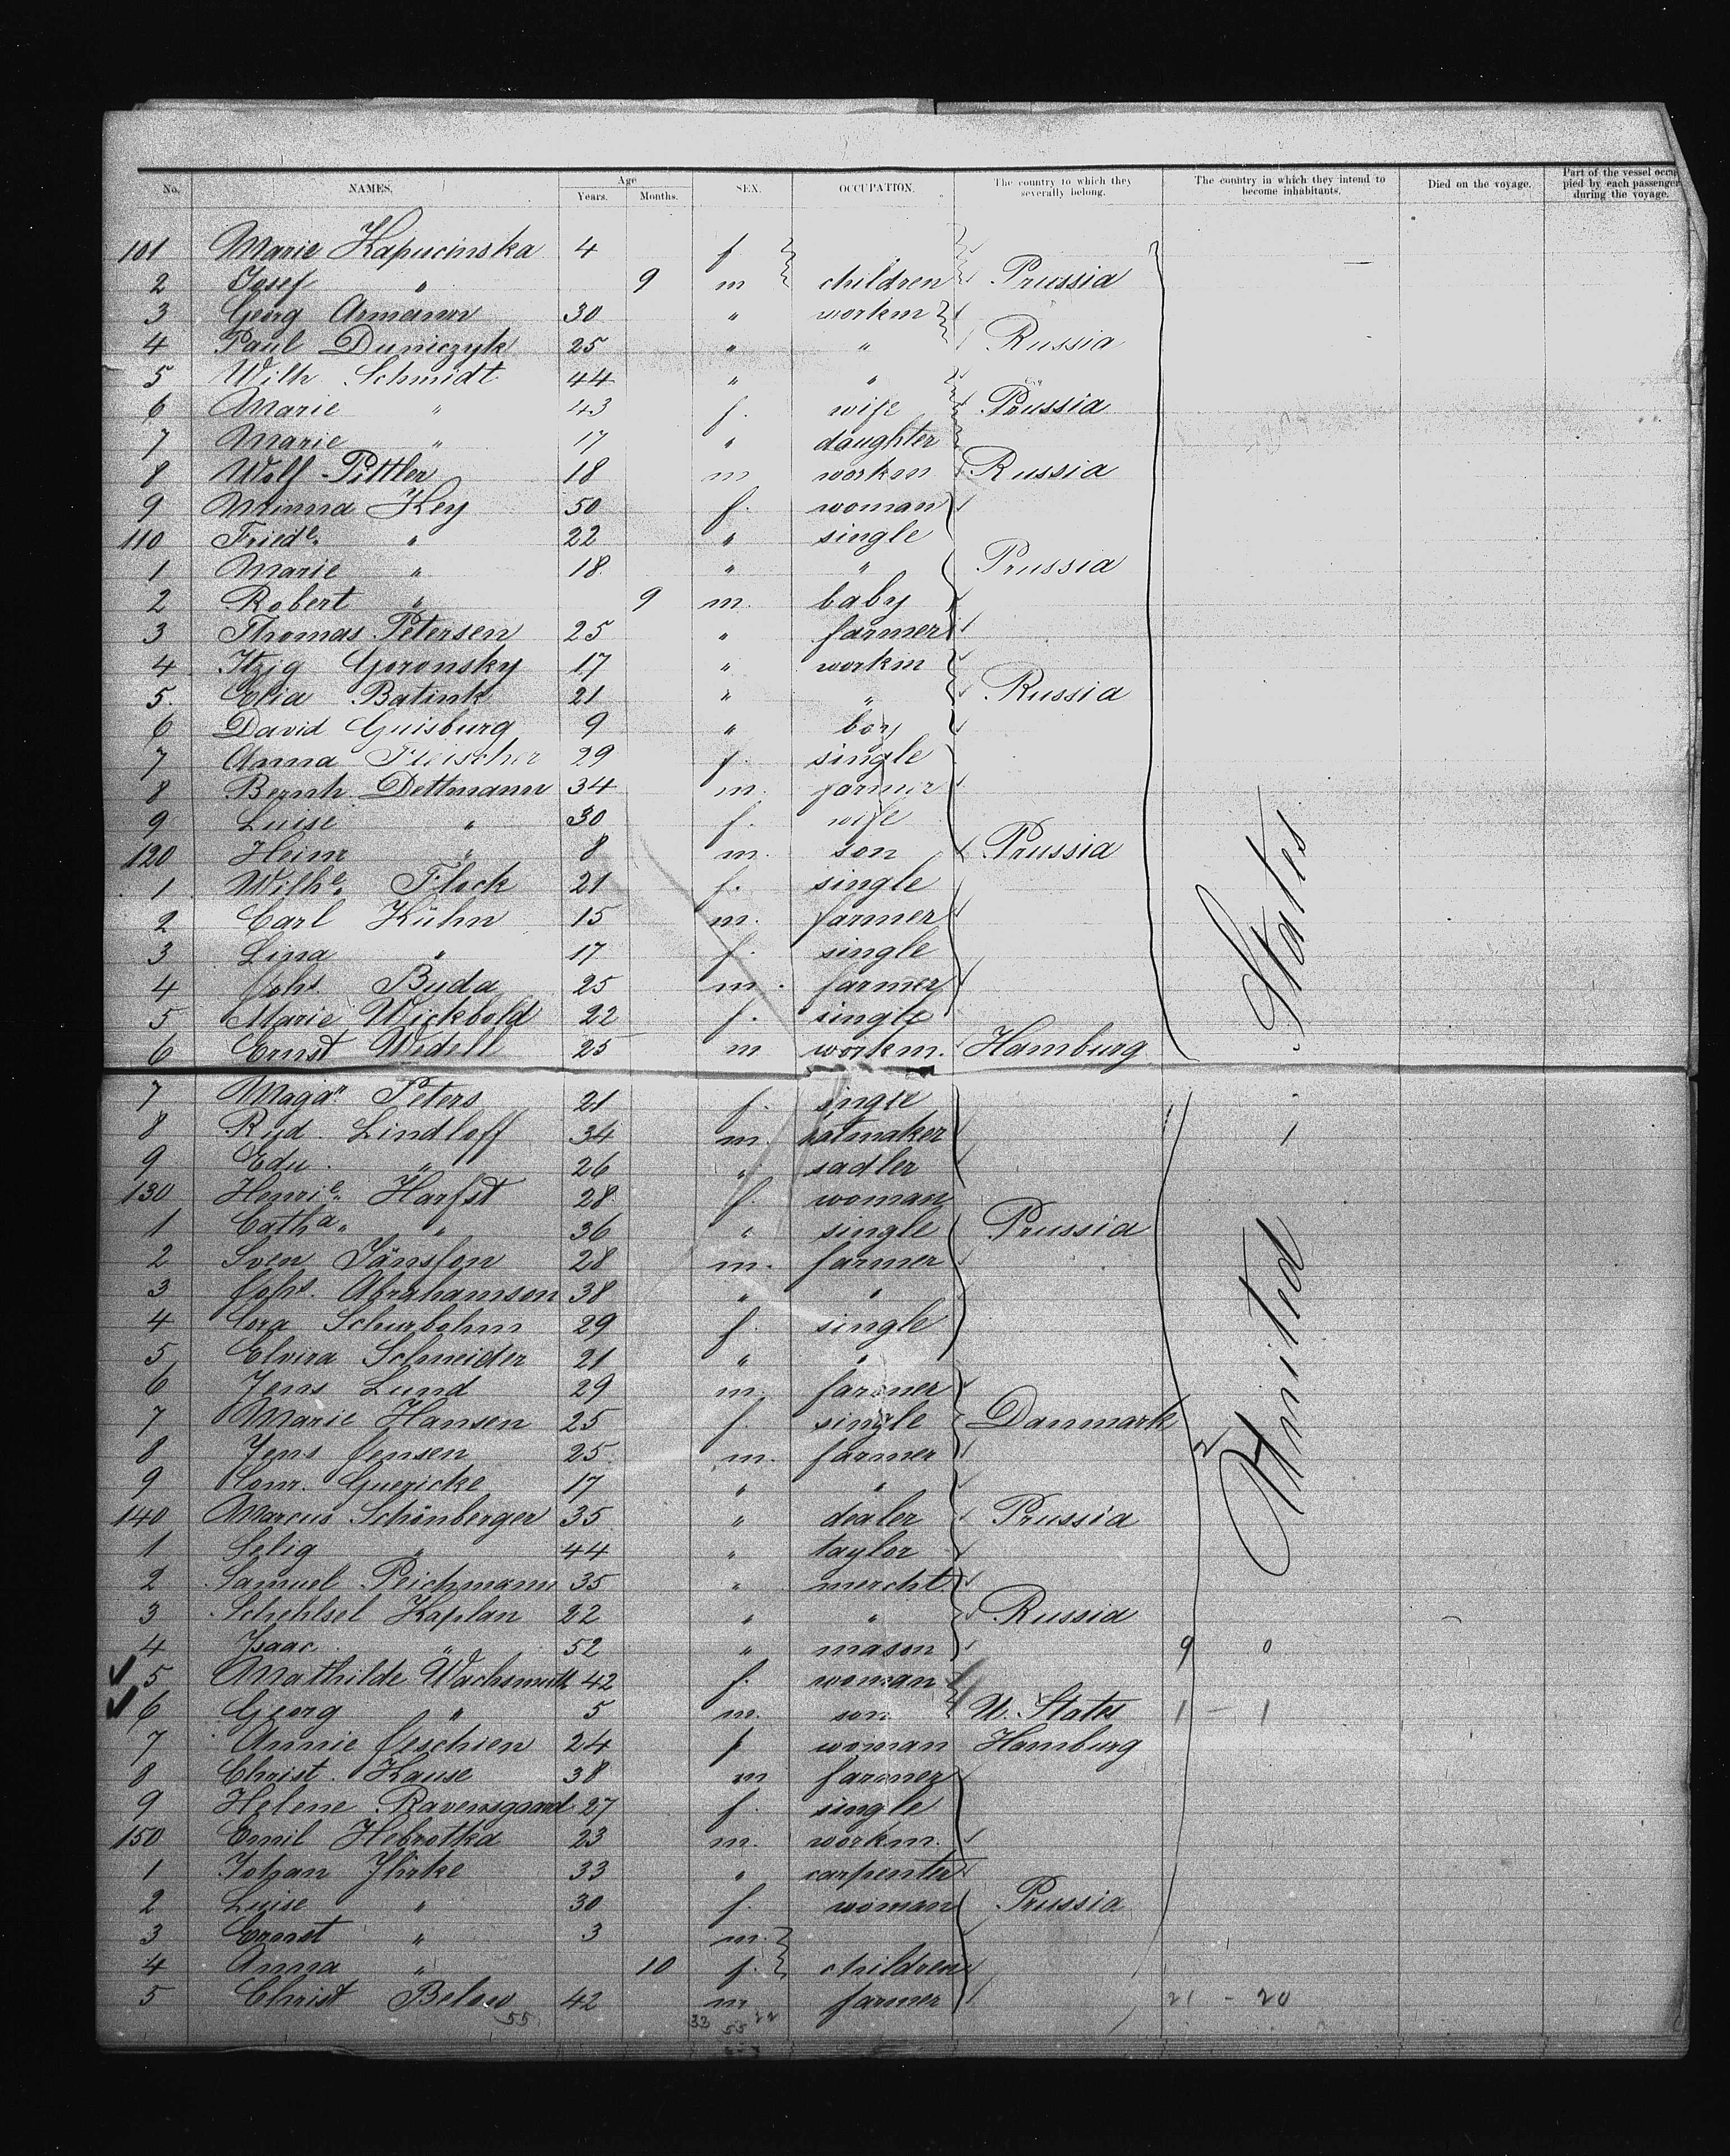 No. NAMES. Age Years. Months. SEX. OCCUPATION. The country to which they severally belong. The country in which they intend to become inhabitants. Died on the voyage. Part of the vessel occupied by each passenger during the voyage.
101 Marie Kapucinska 4 f
2 Josef " 9 m children Prussia
3 Georg Armann 30 " workm
4 Paul Duniczyk 25 " " Russia
5 Wilh Schmidt 44 " "
6 Marie " 43 f. wife Prussia
7 Marie " 17 " daughter
8 Wolf Pittler 18 m workm Russia
9 Minna Key 50 f. woman
110 Friede. " 22 " single
1 Marie " 18. " " Prussia
2 Robert " 9 m. baby
3 Thomas Petersen 25 " farmer
4 Itzig Goronsky 17 " workm
5. Elia Batink 21 " " Russia
6 David Guisburg 9 " boy
7 Anna Fleischer 29 f. single
8 Bernh. Dettmann 34 m. farmer
9 Luise " 30 f. wife
120 Heinr " 8 m. son Prussia
1 Wilhe. Flock 21 f. single
2 Carl Kühn 15 m. farmer
3 Lina " 17 f. single
4 Johs. Buda 25 m. farmer
5 Marie Wickbold 22 f. single
6 Ernst Widell 25 m workm. Hamburg
7 Magda. Peters 21 f. single
8 Rud. Lindloff 34 m. hatmaker
9 Edu. " 26 " sadler
130 Henrie. Harfst 28 f. woman
1 Catha. " 36 " single Prussia
2 Sven Jänsson 28 m. farmer
3 Johs. Abrahamson 38 " "
4 Cora Schurbohm 29 f. single
5 Elvira Schneider 21 " "
6 Jens Lund 29 m. farmer
7 Marie Hansen 25 f. single Danmark
8 Jens Jensen 25 m. farmer 2
9 Guericke 17 " "
140 Marcus Schönberger 35 " dealer Prussia
1 Selig " 44 " taylor
2 Samuel Peichmann 35 " mercht.
3 Schehlsel Kaplan 22 " " Russia
4 Isaac " 52 " mason 9 0
5 Mathilde Wachsmuth 42 f. woman
6 Georg " 5 m. son U. States 1 - 1
7 Annie Jeschien 24 f woman Hamburg
8 Christ. Kause 38 m farmer
9 Helene Ravensgaard 27 f. single
150 Emil Hebrotka 23 m. workm.
1 Johan Jhrke 33 " carpenter
2 Luise " 30 f. woman Prussia
3 Ernst " 3 m.
4 Anna " 10 f. children
5 Christ Below 42 m farmer 21 - 20
55 33 55 22
United States